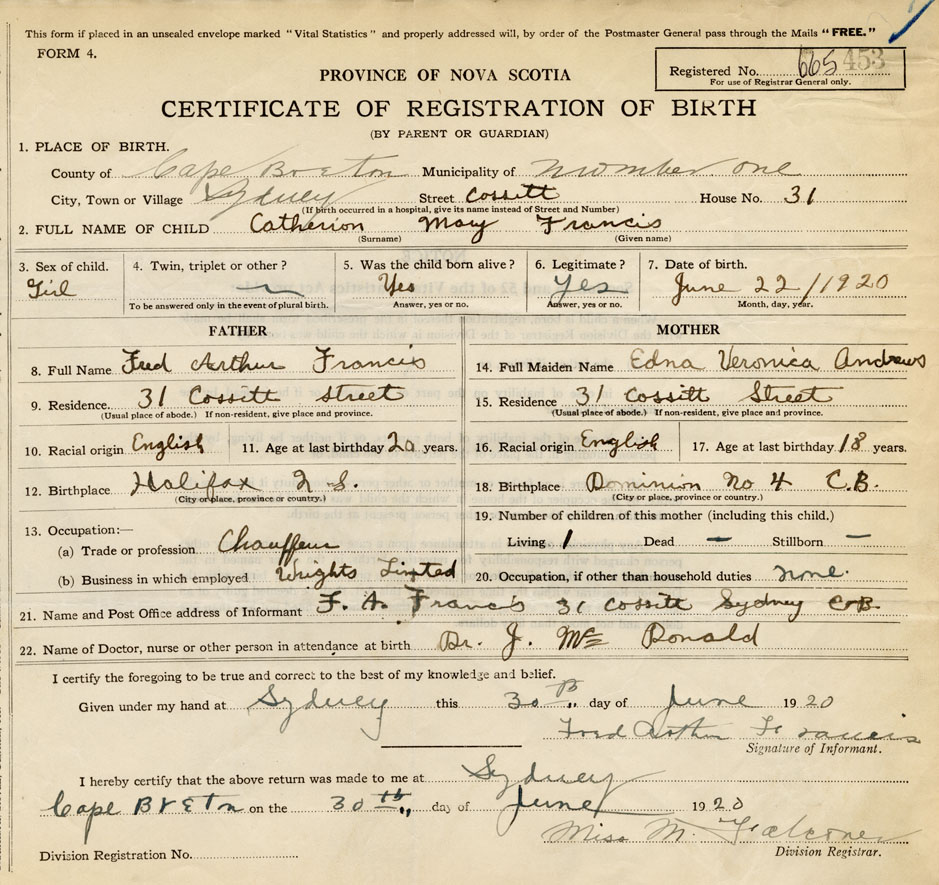 This form if placed in an unsealed envelope marked "Vital Statistics" and properly addressed will, by order of the Postmaster General pass through the Mails "FREE."
FORM 4.
Registered No. 665 453
For use of Registrar General only.
PROVINCE OF NOVA SCOTIA
CERTIFICATE OF REGISTRATION OF BIRTH
(BY PARENT OR GUARDIAN)
1. PLACE OF BIRTH.
County of Cape Breton Municipality of Number one
City, Town or Village Sydney Street Cossitt House No. 31
(If birth occurred in a hospital, give its name instead of Street and Number)
2. FULL NAME OF CHILD Catherion Mary Francis
(Surname) (Given name)
3. Sex of child. 4. Twin, triplet or other? 5. Was the child born alive? 6. Legitimate? 7. Date of birth.
Girl Yes yes June 22/1920
To be answered only in the event of plural birth. Answer, yes or no. Answer, yes or no. Month, day, year.
FATHER MOTHER
8. Full Name Fred Arthur Francis 14. Full Maiden Name Edna Veronica Andrews
9. Residence 31 Cossitt Street 15. Residence 31 Cossitt Street
(Usual place of abode.) If non-resident, give place and province. (Usual place of abode.) If non-resident, give place and province.
10. Racial origin English 11. Age at last birthday 20 years. 16. Racial origin English 17. Age at last birthday 18 years.
12. Birthplace Halifax N.S. 18. Birthplace Dominion No 4 C.B.
(City or place, province or country.) (City or place, province or country.)
13. Occupation:— 19. Number of children of this mother (including this child.)
(a) Trade or profession Chauffeur Living 1 Dead — Stillborn —
(b) Business in which employed Wrights Limted 20. Occupation, if other than household duties none.
21. Name and Post Office address of Informant F. A. Francis 31 Cossitt Sydney C.B.
22. Name of Doctor, nurse or other person in attendance at birth Dr. J. Mc Donald
I certify the foregoing to be true and correct to the best of my knowledge and belief.
Given under my hand at Sydney this 30th day of June 1920
Fred Arthur Francis
Signature of Informant.
I hereby certify that the above return was made to me at Sydney
Cape Breton on the 30th day of June 1920
Miss M. Falconer
Division Registration No. Division Registrar.